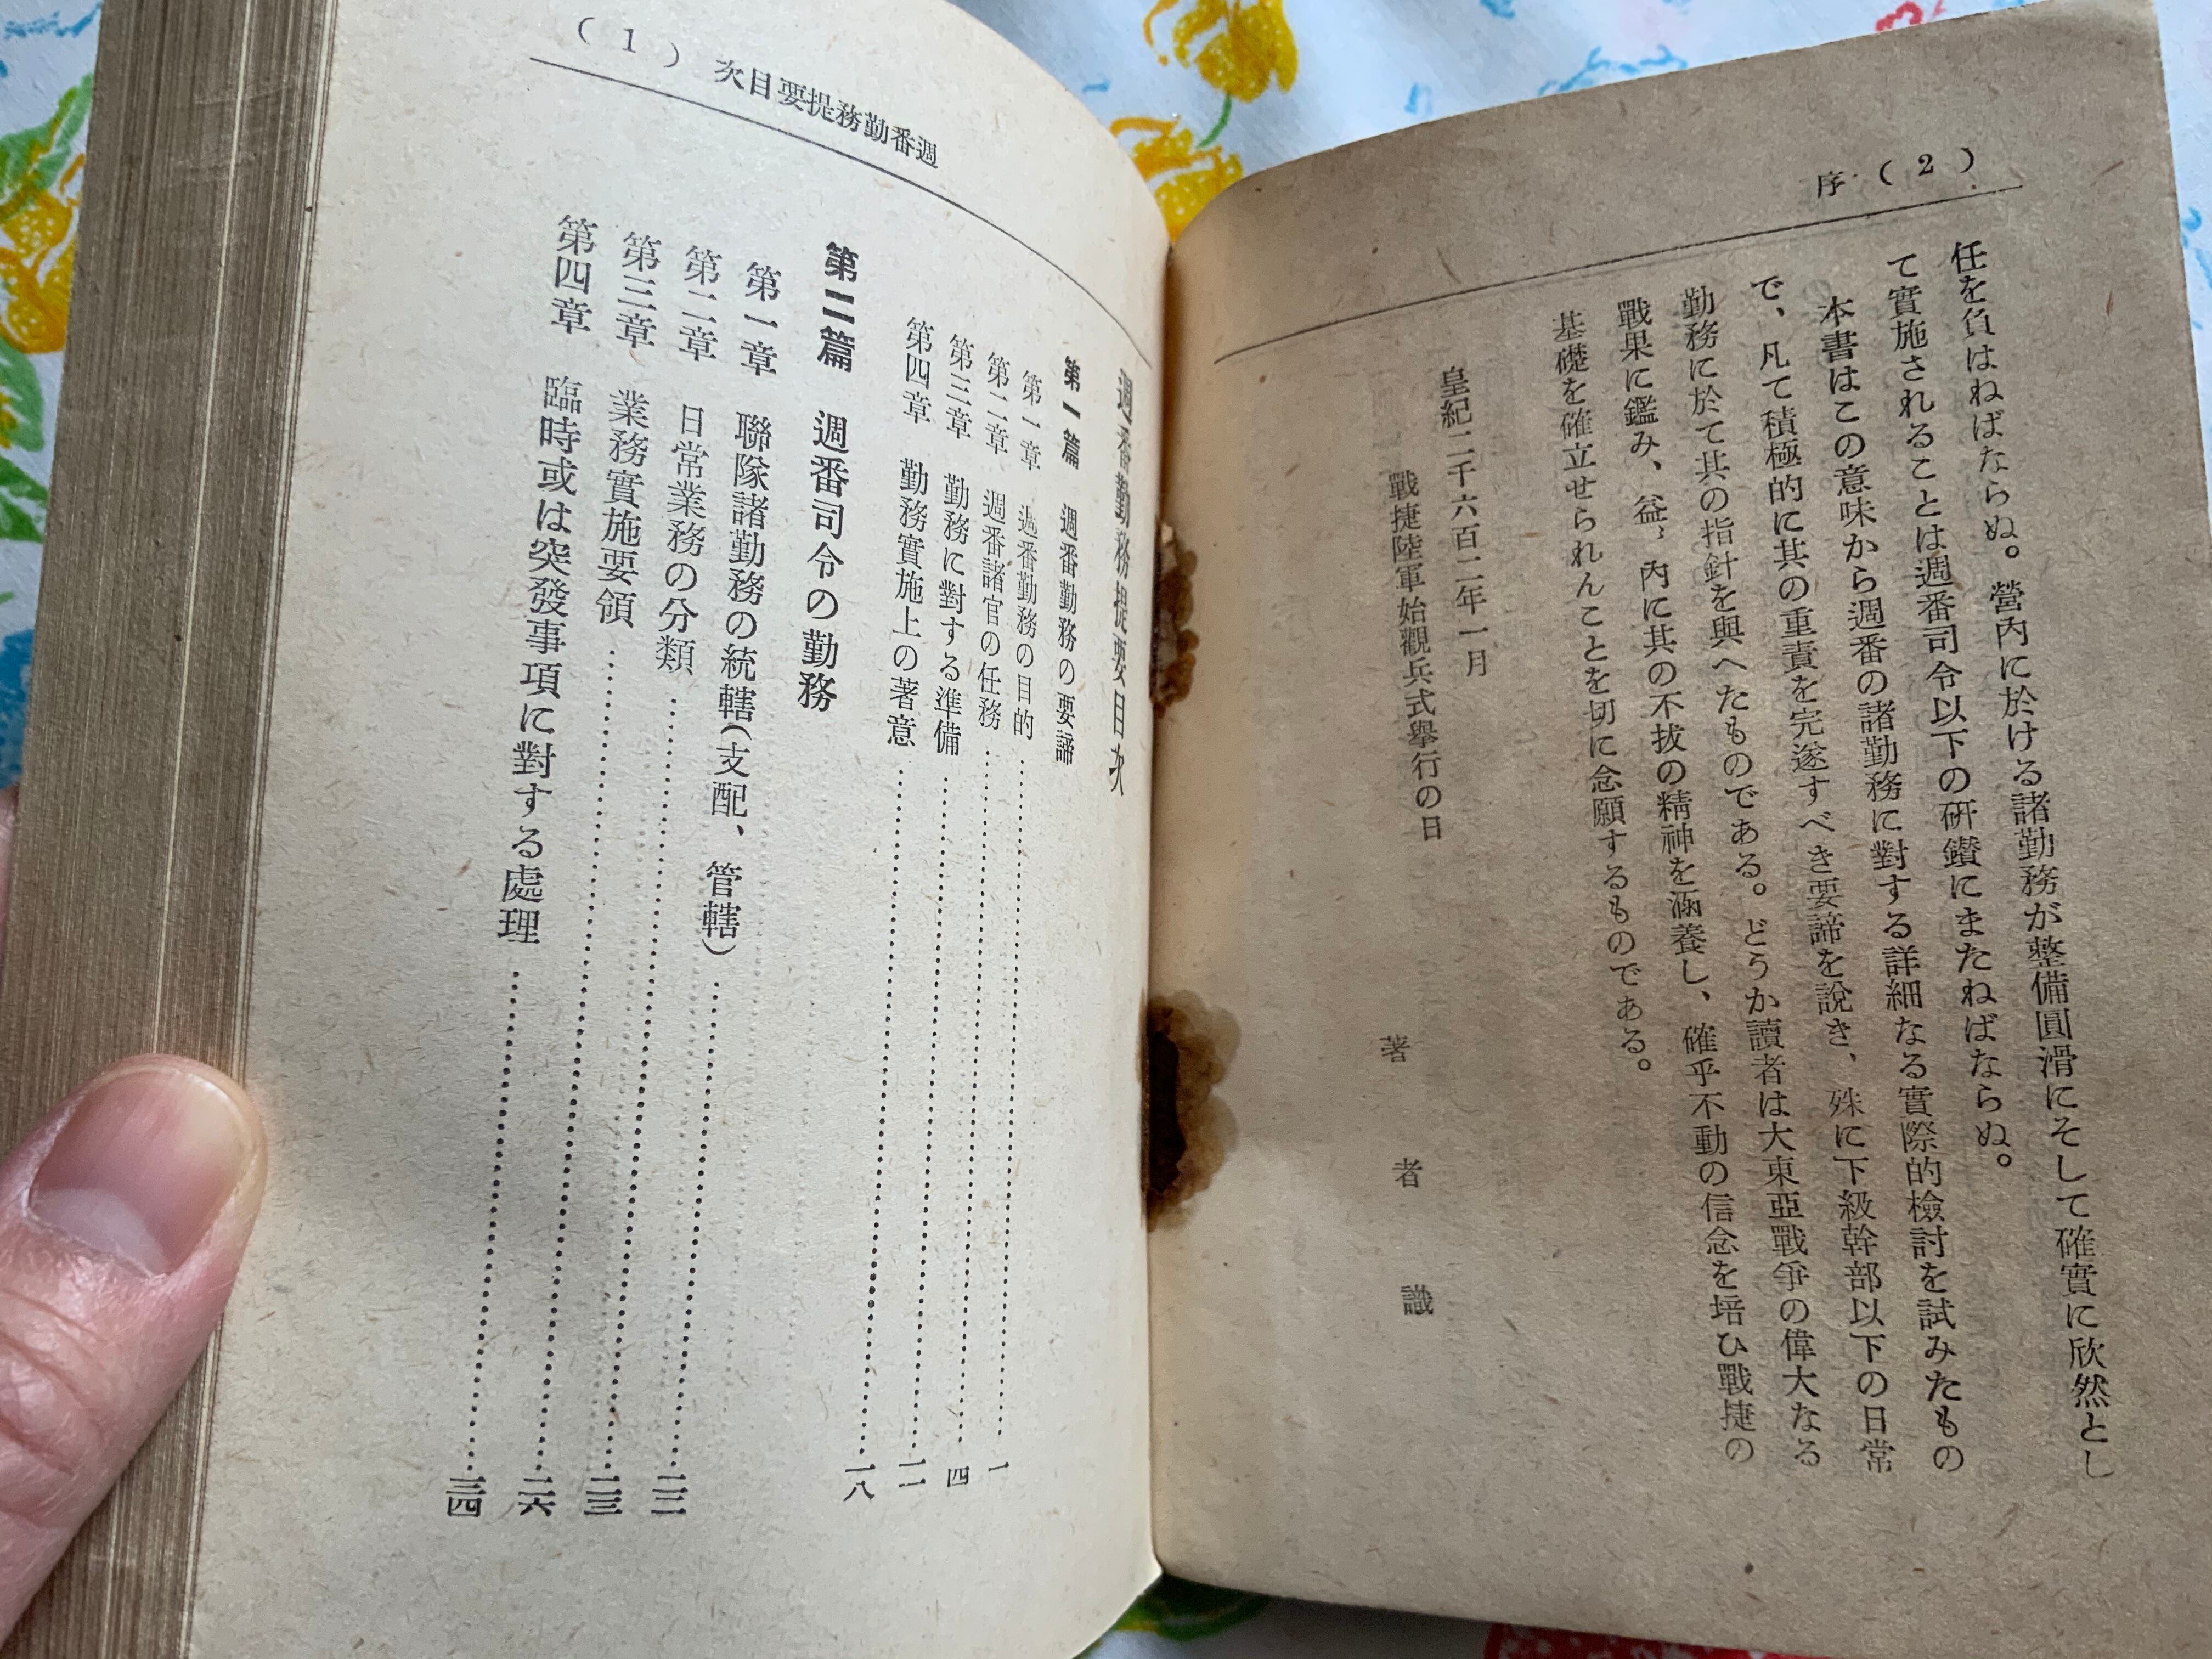 序 (2)
任を負はねばならぬ。營內に於ける諸勤務が整備圓滑にそして確實に欣然とし
て實施されることは週番司令以下の硏鑽にまたねばならぬ。
本書はこの意味から週番の諸勤務に對する詳細なる實際的檢討を試みたもの
で、凡て積極的に其の重責を完遂すべき要諦を說き、殊に下級幹部以下の日常
勤務に於て其の指針を與へたものである。どうか讀者は大東亞戰爭の偉大なる
戰果に鑑み、益〻內に其の不拔の精神を涵養し、確乎不動の信念を培ひ戰捷の
基礎を確立せられんことを切に念願するものである。
皇紀二千六百二年一月
戰捷陸軍始觀兵式擧行の日
著者識
(1) 次目要提務勤番週
週番勤務提要目次
第一篇 週番勤務の要諦
第一章 週番勤務の目的……一
第二章 週番諸官の任務……四
第三章 勤務に對する準備……一一
第四章 勤務實施上の著意……一八
第二篇 週番司令の勤務
第一章 聯隊諸勤務の統轄(支配、管轄)……二二
第二章 日常業務の分類……二三
第三章 業務實施要領……二六
第四章 臨時或は突發事項に對する處理……三四